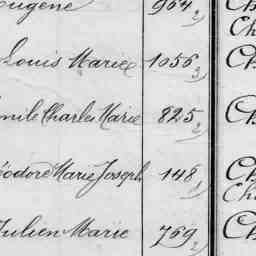 Eugène 964 2 Ch
Ch
Louis Marie 1056 3 Ch
Emile Charles Marie 825 2 Ch
Théodore Marie Joseph 148 1 Ch
Ch
Julien Marie 769 2 Ch